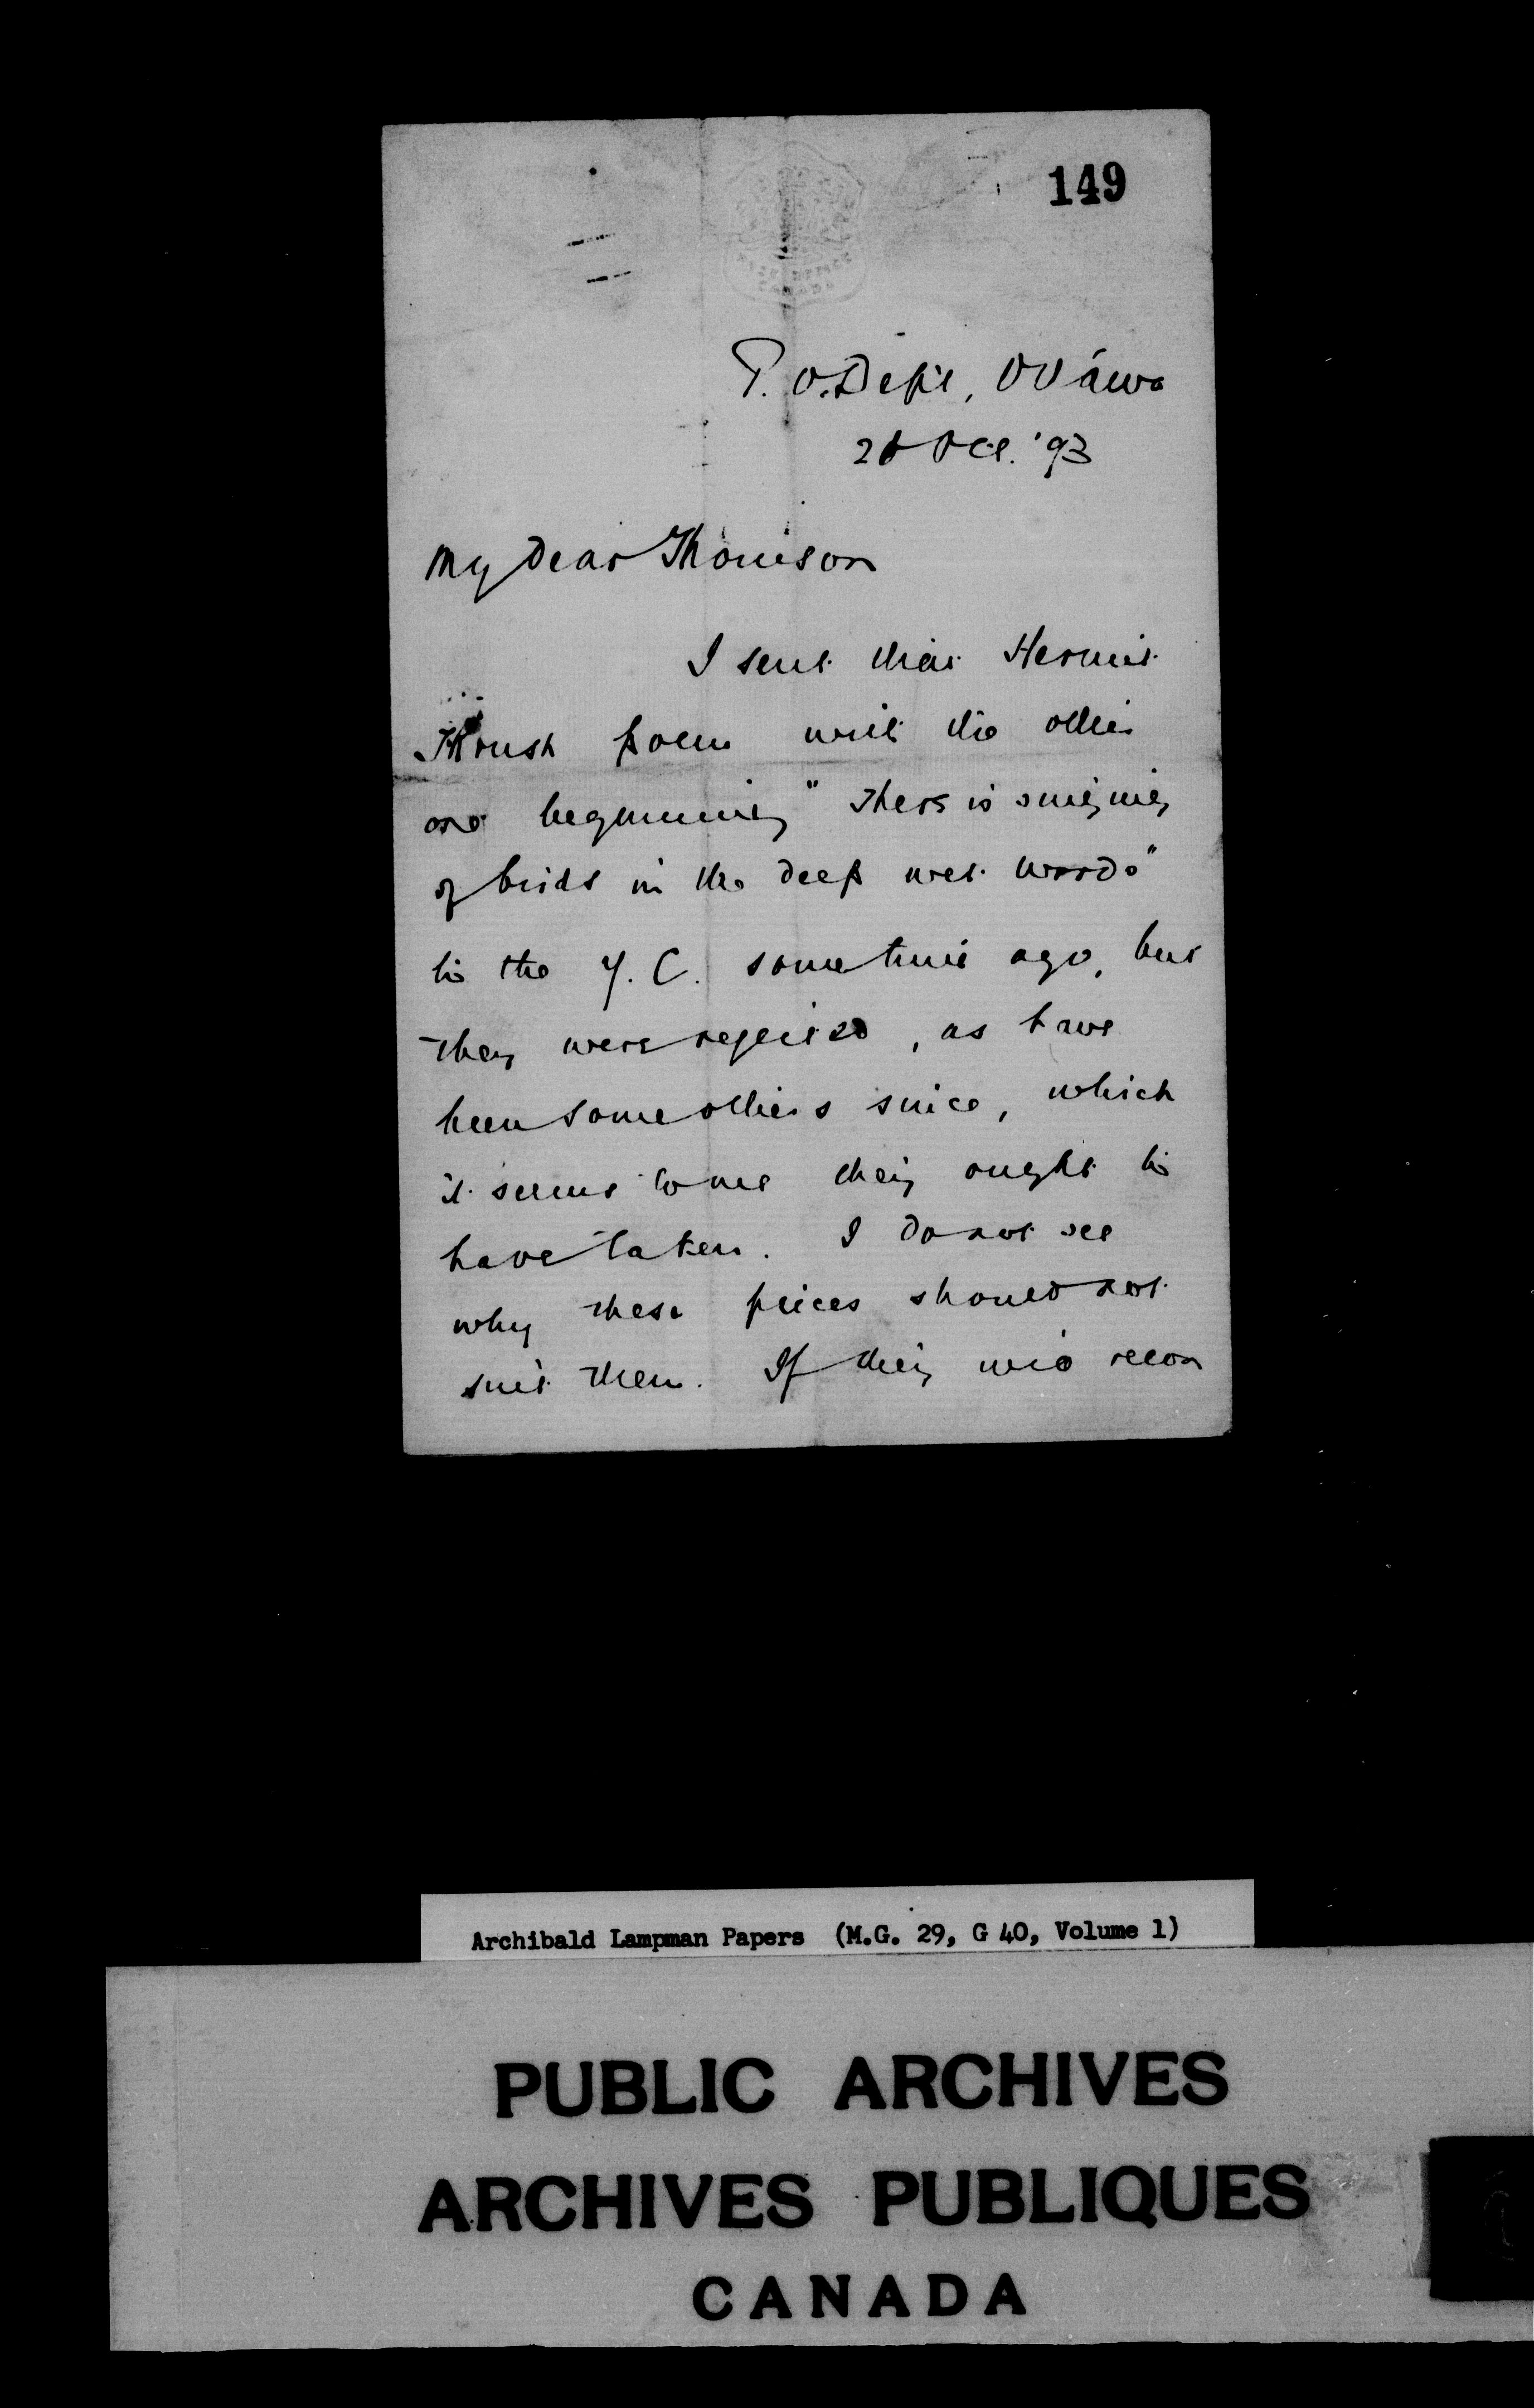 149
POST OFFICE
CANADA
P.O. Dept, Ottawa
Oct. '93
My Dear Thomson
I sent that Hermit
Thrush poem with the other
one beginning "There is singing
of birds in the deep wet woods"
to the Y.C. some time ago, but
they were rejected, as have
been some others since, which
it seems to me they ought to
have taken. I do not see
why these pieces should not
suit them. If they will recon
Archibald Lampman Papers (M.G. 29, G 40, Volume 1)
PUBLIC ARCHIVES
ARCHIVES PUBLIQUES
CANADA